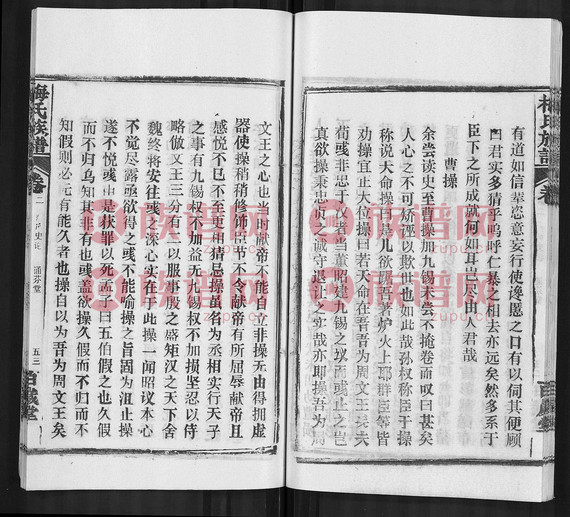 有道如信輩恣意妄行使讒慝之口有以伺其便顧
君實多猜乎嗚呼仁暴之相去亦遠矣然多系于
臣下之所成就何如耳豈尽由人君哉
曹操
余尝读史至曹操加九锡未尝不掩卷而叹曰甚矣
人心之不可矫誣以欺世也如此哉孙权称臣于操
称说天命操曰是儿欲踞吾著炉火上耶群臣等皆
劝操宜正大位操曰若天命在吾吾为周文王矣夫
荀彧非忠于汉者当董昭建九锡之议而彧止之岂
真欲操秉忠贞之诚守退让之实哉亦即操吾为周
文王之心也当时献帝不能自立非操无由得拥虚
器使操稍稍修饰臣节不令献帝有所屈辱献帝且
感悦不已不至更相猜忌操虽名为丞相实行天子
之事有九锡权不加益无九锡权不加损坚忍以侍
略倣文王三分有二以服事殷之盛矩汉之天下舍
魏终将安往彧之深心实在于此操一闻昭议本心
不觉尽露亟欲得之彧不能谕操之旨固为沮止操
遂不悦彧由是获罪以死孟子曰五伯假之也久假
而不归乌知其非有也彧盖欲操久假而不归而不
知假则必无有能久者也操自以为吾为周文王矣
梅氏族譜
卷
二
诵芬堂
五三
梅氏族譜
卷
族谱网
zupu.cn